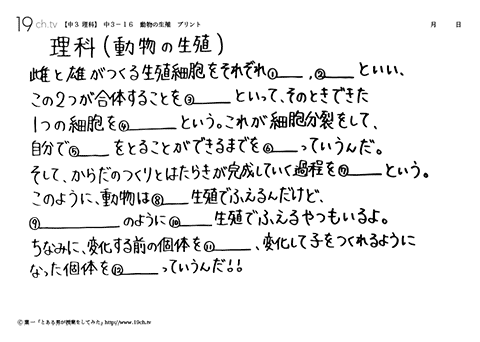 19ch.tv 【中3 理科】 中3-16 動物の生殖 プリント 月 日
理科(動物の生殖)
雌と雄がつくる生殖細胞をそれぞれ①____,②____といい、
この2つが合体することを③____といって、そのときできた
1つの細胞を④____という。これが細胞分裂をして、
自分で⑤____をとることができるまでを⑥____っていうんだ。
そして、からだのつくりとはたらきが完成していく過程を⑦____という。
このように、動物は⑧____生殖でふえるんだけど、
⑨____のように⑩____生殖でふえるやつもいるよ。
ちなみに、変化する前の個体を⑪____、変化して子をつくれるように
なった個体を⑫____っていうんだ!!
©葉一「とある男が授業をしてみた」http://www.19ch.tv